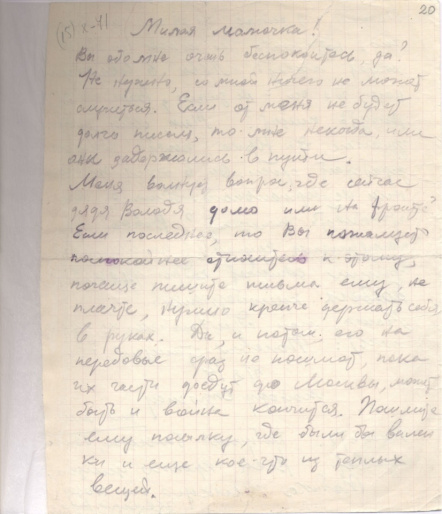 20
(15) X-41
Милая мамочка!
Вы обо мне очень беспокоитесь, да?
Не нужно, со мной ничего не может
случиться. Если от меня не будет
долго писем, то мне некогда, или
они задержались в пути.
Меня волнует вопрос, где сейчас
дядя Володя дома или на фронте?
Если последнее, то Вы пожалуйста
поспокойнее относитесь к этому,
почаще пишите письма ему, не
плачте, нужно крепче держать себя
в руках. Да, и потом его на
передовые сразу не пошлют, пока
их части дойдут до Москвы, может
быть и война кончится. Пошлите
ему посылку, где были бы вален
ки и еще кое-что из теплых
вещей.